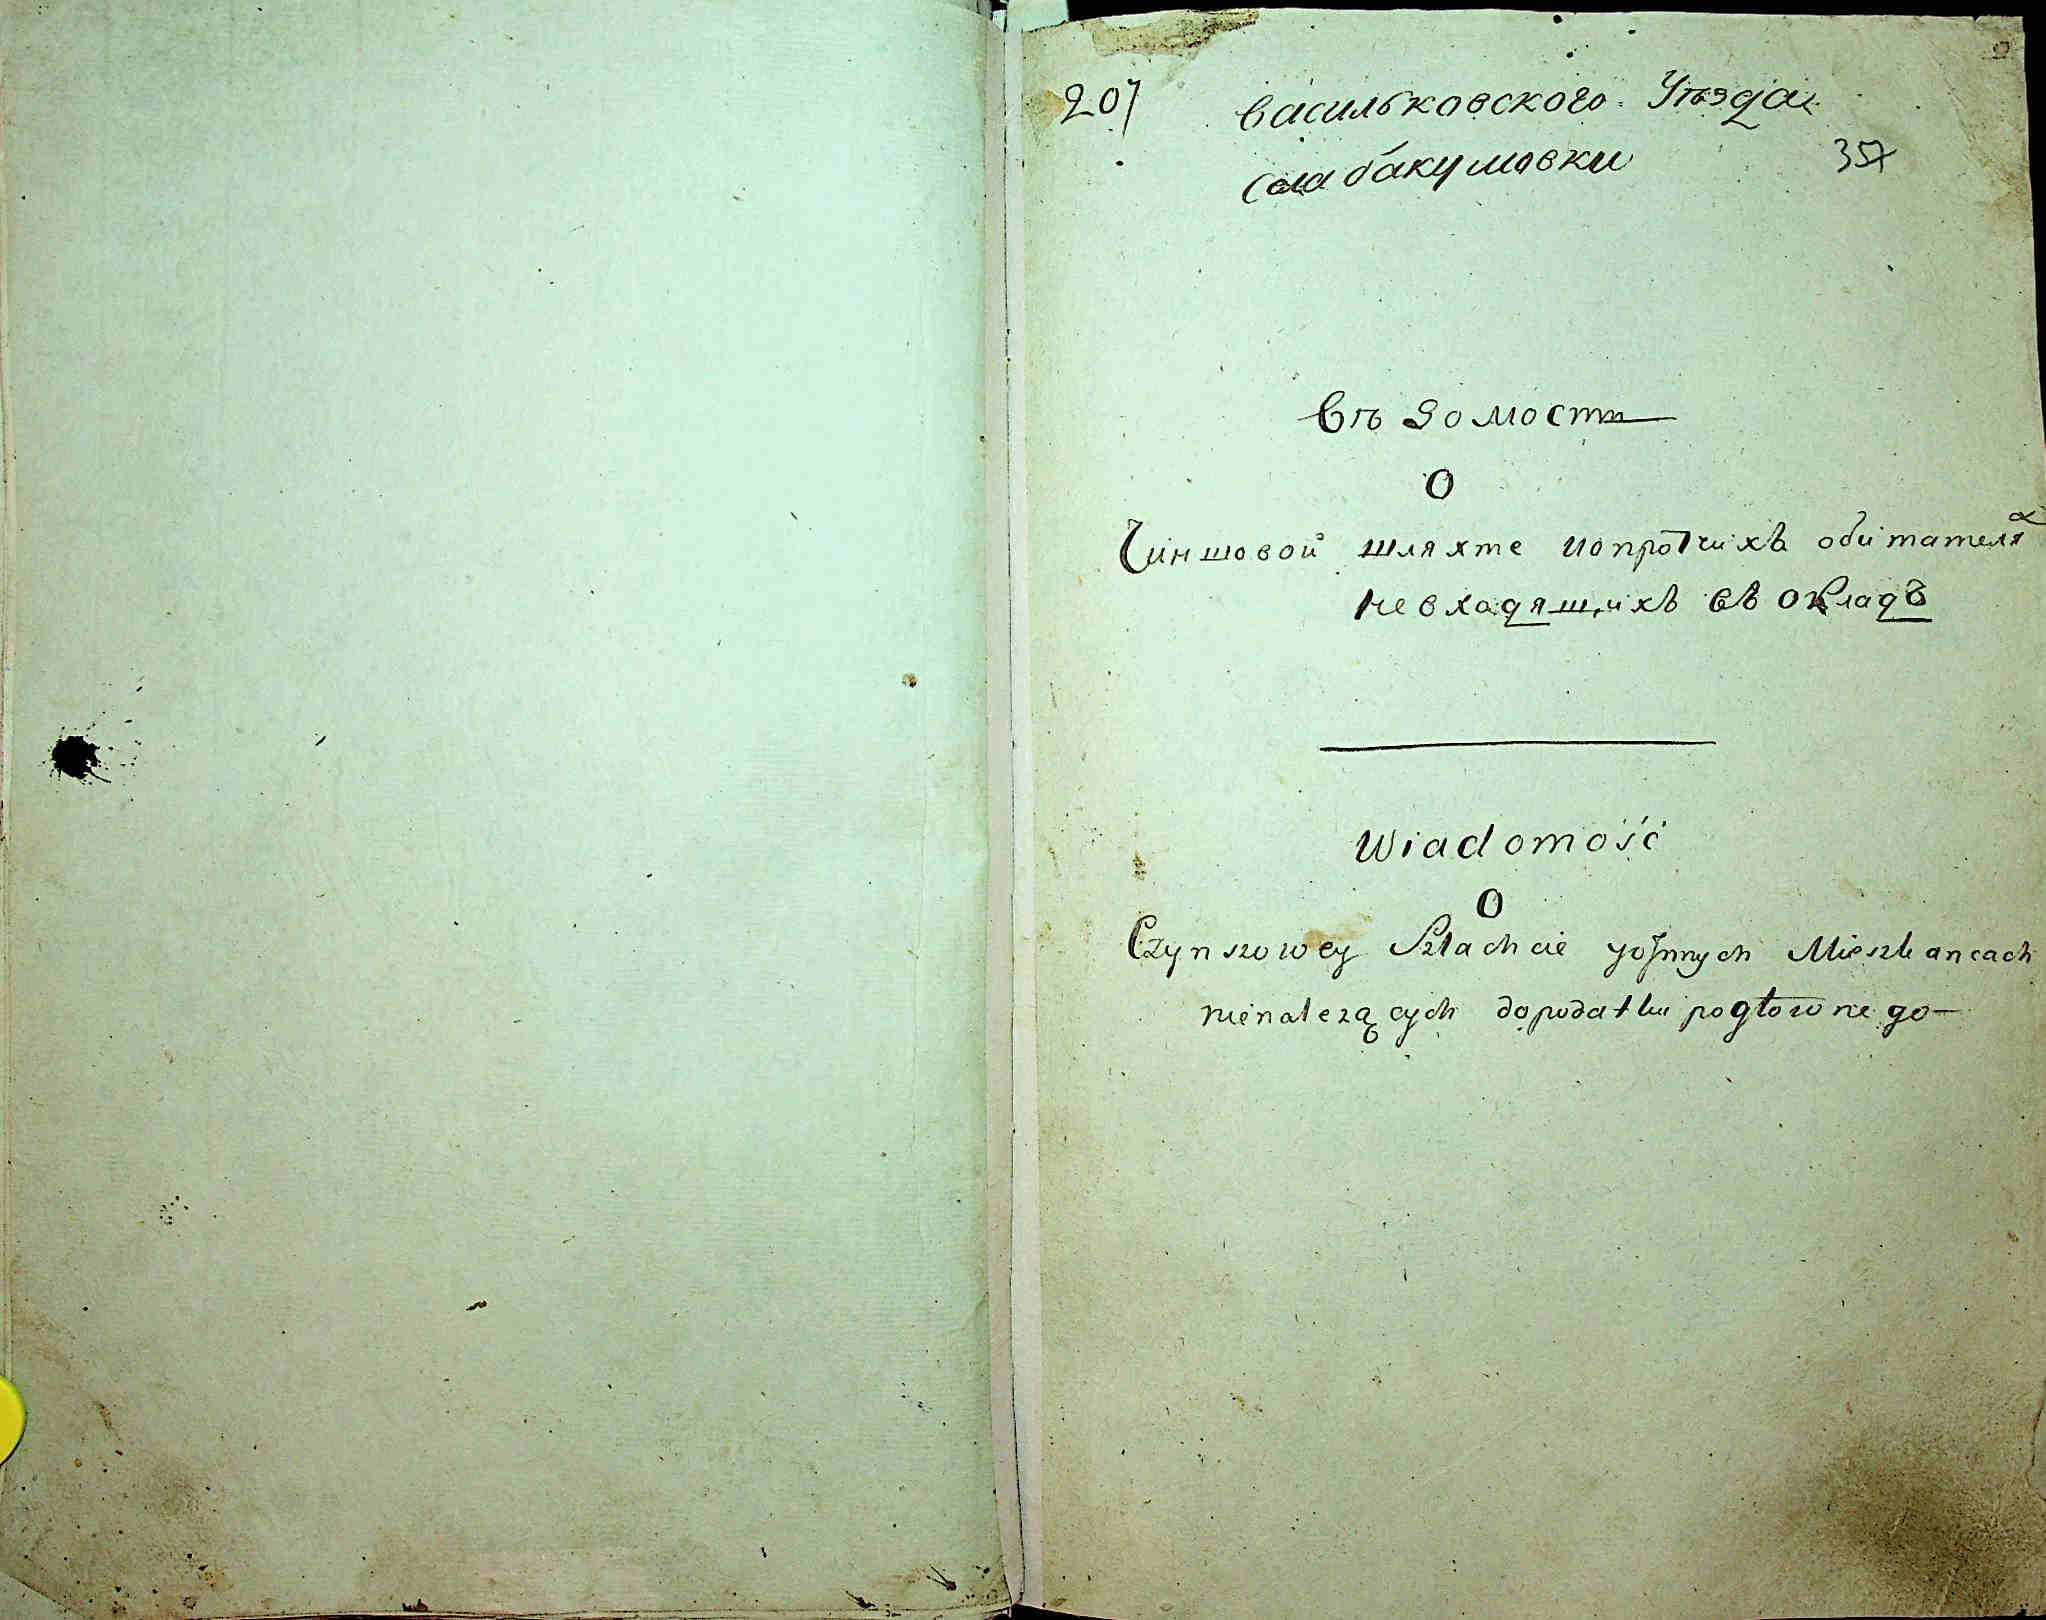 207
васильковского Уѣзда
села бакумовки
357
вѣдомости
О
Чиншовой шляхте ио протчихъ обитателях
невхадящихъ въ окладъ
Wiadomość
O
Czynszowey Szlachcie yoJnnych Mieszkancach
nienależących dopodatku pogłownego